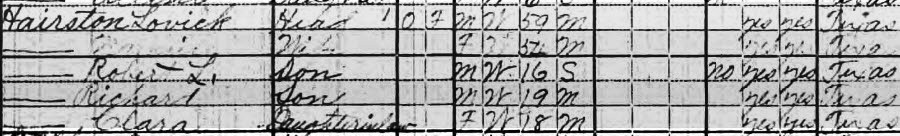 Hairston Lovick Head 1 0 F M W 59 M yes yes Texas
—— Wife F W 54 M yes yes Texas
—— Robert L. Son M W 16 S no yes yes Texas
—— Richard Son M W 19 M yes yes Texas
—— Clara Daughterinlaw F W 18 M yes yes Texas